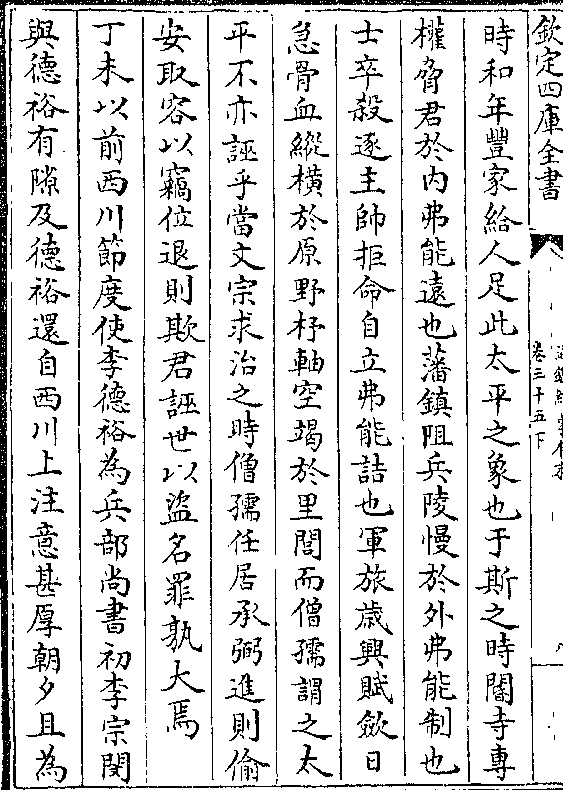 欽定四庫全書
卷三十五下
時和年豐家給人足此太平之象也于斯之時閽寺專
權脅君於內弗能遠也藩鎮阻兵陵慢於外弗能制也
士卒殺逐主帥拒命自立弗能詰也軍旅歲興賦斂日
急骨血縱橫於原野杼軸空竭於里閭而僧孺謂之太
平不亦誣乎當文宗求治之時僧孺任居承弼進則偷
安取容以竊位退則欺君誣世以盜名罪孰大焉
丁未以前西川節度使李德裕為兵部尚書初李宗閔
與德裕有隙及德裕還自西川上注意甚厚朝夕且為